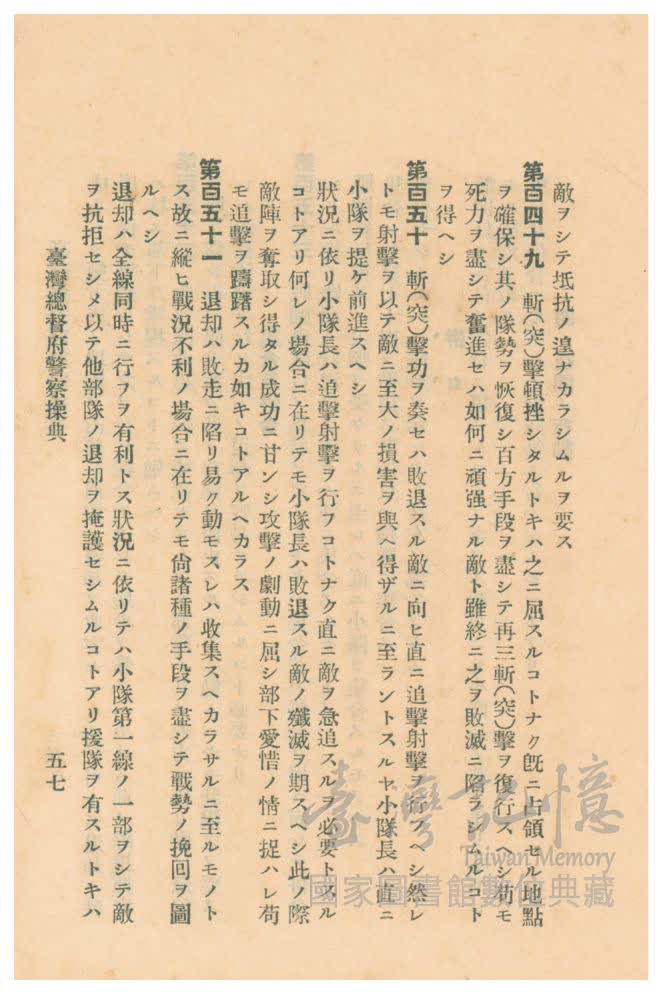 敵ヲシテ抵抗ノ遑ナカラシムルヲ要ス
第百四十九　斬(突)擊頓挫シタルトキハ之ニ屈スルコトナク旣ニ占領セル地點
ヲ確保シ其ノ隊勢ヲ恢復シ百方手段ヲ盡シテ再三斬(突)擊ヲ復行スヘシ苟モ
死力ヲ盡シテ奮進セハ如何ニ頑强ナル敵ト雖終ニ之ヲ敗滅ニ陷ラシムルコト
ヲ得ヘシ
第百五十　斬(突)擊功ヲ奏セハ敗退スル敵ニ向ヒ直ニ追擊射擊ヲ行フヘシ然レ
トモ射擊ヲ以テ敵ニ至大ノ損害ヲ與ヘ得ザルニ至ラントスルヤ小隊長ハ直ニ
小隊ヲ提ケ前進スヘシ
狀況ニ依リ小隊長ハ追擊射擊ヲ行フコトナク直ニ敵ヲ急追スルヲ必要トスル
コトアリ何レノ場合ニ在リテモ小隊長ハ敗退スル敵ノ殲滅ヲ期スヘシ此ノ際
敵陣ヲ奪取シ得タル成功ニ甘ンシ攻擊ノ劇動ニ屈シ部下愛惜ノ情ニ捉ハレ苟
モ追擊ヲ躊躇スルカ如キコトアルヘカラス
第百五十一　退却ハ敗走ニ陷リ易ク動モスレハ收集スヘカラサルニ至ルモノト
ス故ニ縱ヒ戰況不利ノ場合ニ在リテモ尙諸種ノ手段ヲ盡シテ戰勢ノ挽回ヲ圖
ルヘシ
退却ハ全線同時ニ行フヲ有利トス狀況ニ依リテハ小隊第一線ノ一部ヲシテ敵
ヲ抗拒セシメ以テ他部隊ノ退却ヲ掩護セシムルコトアリ援隊ヲ有スルトキハ
臺灣總督府警察操典
五七
臺灣記憶
Taiwan Memory
國家圖書館數位典藏